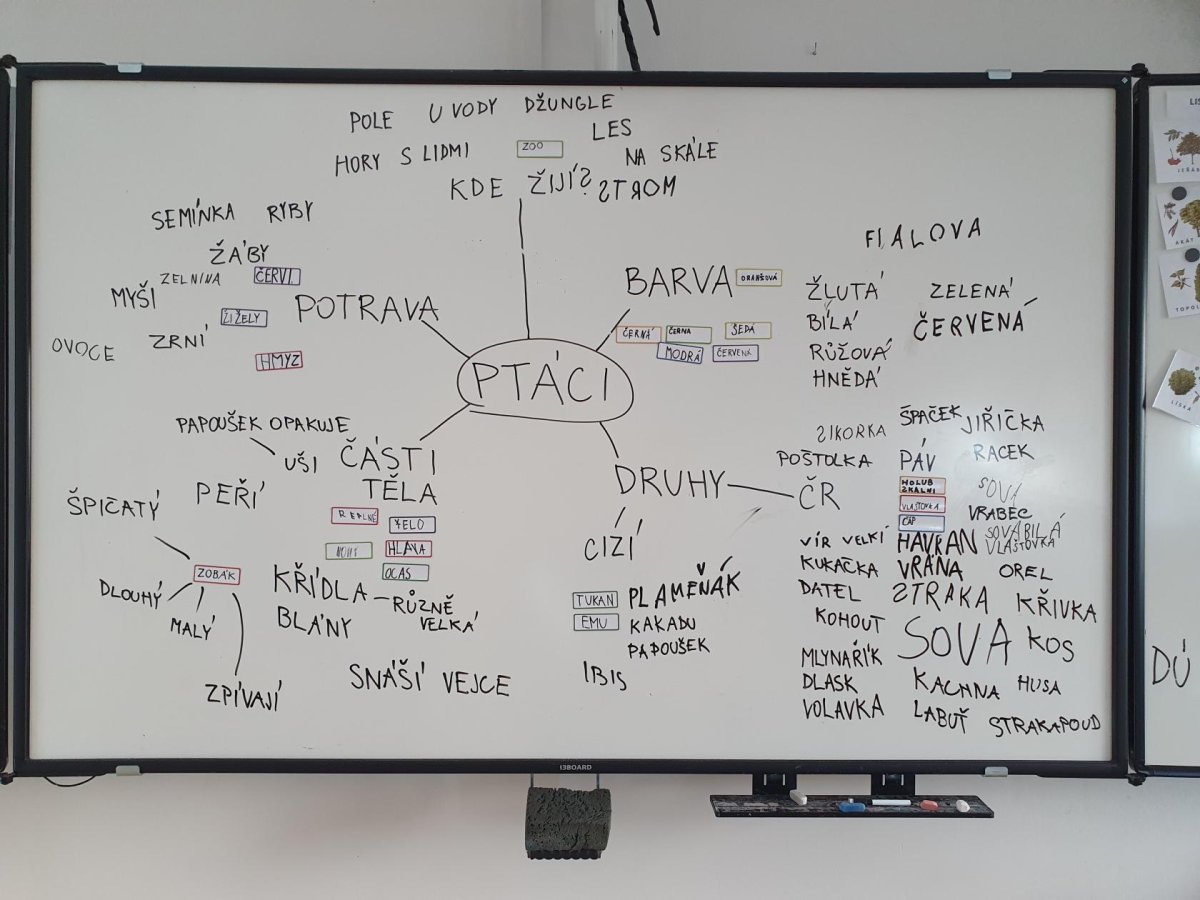 POLE U VODY DŽUNGLE
LES
HORY S LIDMI ZOO NA SKÁLE
KDE ŽIJÍ? STROM
SEMÍNKA RYBY
ŽÁBY
ZELNINA ČERVI
MYŠI
ŽÍŽELY
ZRNÍ
OVOCE
HMYZ
POTRAVA
FIALOVA
BARVA ORANŽOVÁ
ŽLUTÁ ZELENÁ
BÍLÁ ČERVENÁ
RŮŽOVÁ
HNĚDÁ
ČERNÁ ČERNA ŠEDÁ
MODRÁ ČERVENÁ
PTÁCI
PAPOUŠEK OPAKUJE
UŠI
ČÁSTI
TĚLA
PEŘÍ
ŠPIČATÝ
ZOBÁK
DLOUHÝ
MALÝ
ZPÍVAJÍ
TĚLO
HLAVA
OCAS
KŘÍDLA – RŮZNĚ
VELKÁ
BLÁNY
SNÁŠÍ VEJCE
DRUHY
CIZÍ
TUKAN PLAMEŇÁK
EMU KAKADU
PAPOUŠEK
IBIS
ČR
SIKORKA ŠPAČEK JIŘIČKA
POŠTOLKA PÁV RACEK
HOLUB
SKALNI
SOVA
VLAŠTOVKA VRABEC
ČÁP
SOVA BILÁ
VÍR VELKÍ HAVRAN VLAŠTOVKA
KUKAČKA VRÁNA OREL
DATEL STRAKA KŘIVKA
KOHOUT SOVA KOS
MLYNAŘÍK
DLASK KACHNA HUSA
VOLAVKA LABUŤ STRAKAPOUD
DÚ
LIS
JEŘÁB
AKÁT
TOPOL
LÍSKA
I3BOARD